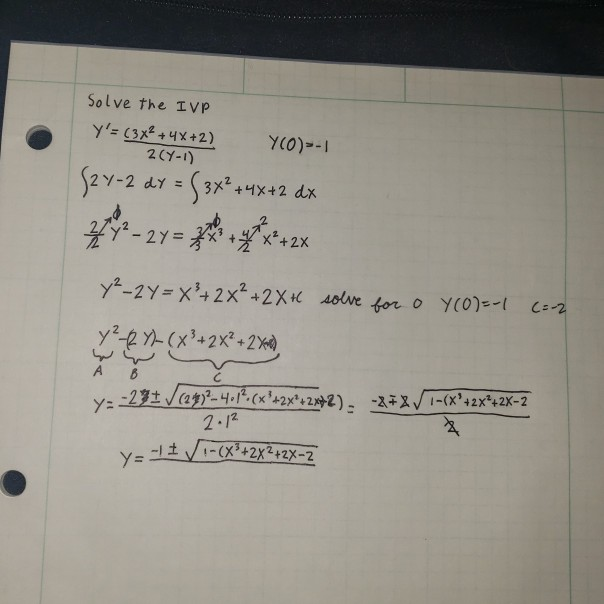 Solve the IVP
Y' = (3x² + 4x + 2) / 2(Y-1)    Y(0) = -1
∫2Y-2 dY = ∫3x² + 4x + 2 dx
2/2 Y² - 2Y = 3/3 x³ + 4/2 x² + 2x
Y² - 2Y = x³ + 2x² + 2x + c solve for 0 Y(0) = -1 C = -2
Y² - (2Y) - (x³ + 2x² + 2x
A B C
Y = -2 ± √(2)² - 4·1²·(x³ + 2x² + 2x-2) / 2·1² = -2 ∓ 2√1-(x³ + 2x² + 2x - 2 / 2
Y = -1 ± √1-(x³ + 2x² + 2x - 2